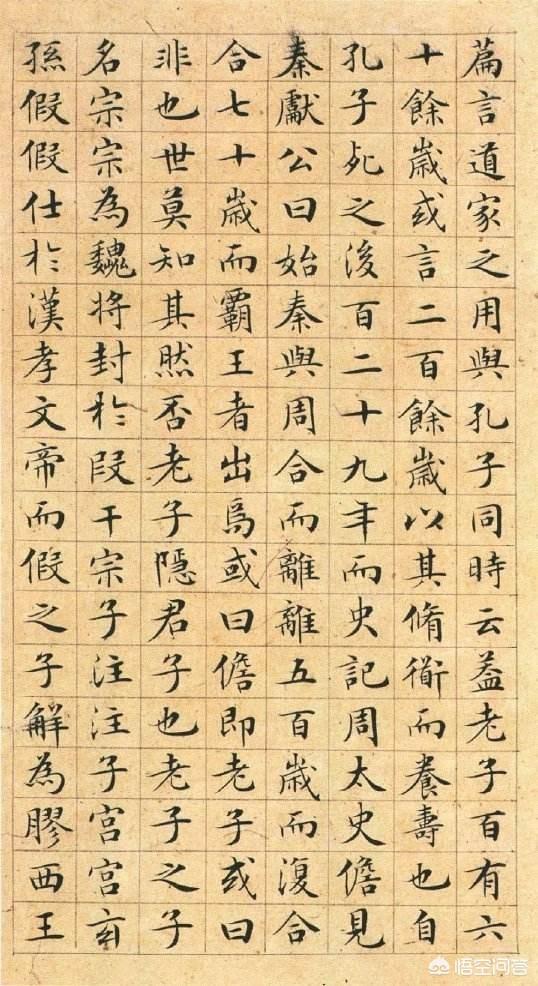 篇言道家之用與孔子同時云葢老子百有六
十餘歲或言二百餘歲以其脩衜而養壽也自
孔子死之後百二十九年而史記周太史儋見
秦獻公曰始秦與周合而離離五百歲而復合
合七十歲而霸王者出焉或曰儋即老子或曰
非也世莫知其然否老子隱君子也老子之子
名宗宗為魏將封於段干宗子注注子宮宮玄
孫假假仕於漢孝文帝而假之子解為膠西王
悟空问答